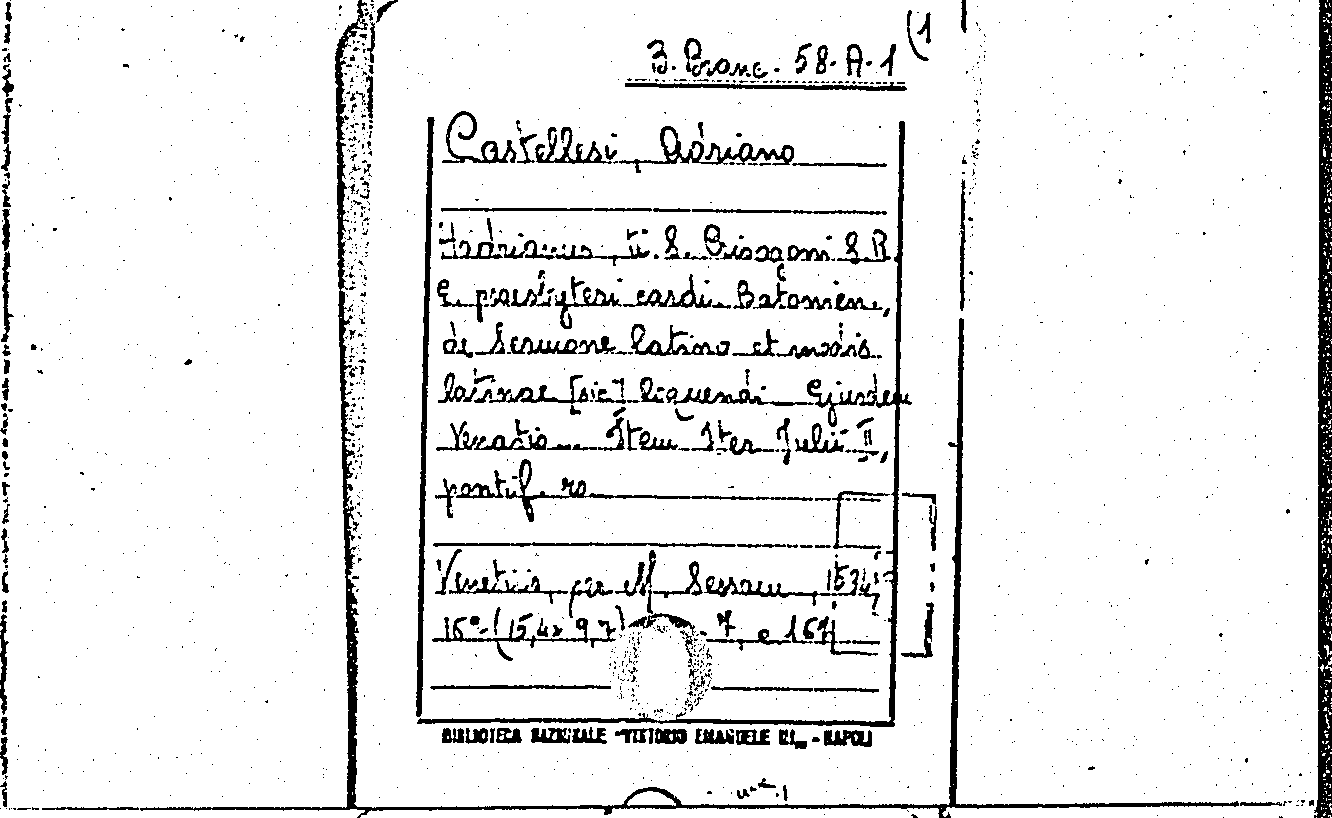 (1
B. Branc. 58. A. 1
Castellesi, Adriano
Hadrianus, ti. S. Crisogoni S. R.
E. praesbyteri cardi. Batonien.,
de Sermone latino et modis
latinae [sic] liquendi. Ejusdem
Venatio. Item Iter Julii II,
pontif. ro.
Venetiis, per M. Sessam, 1534;
16° (15,4x 9,7) 7, c 167
BIBLIOTECA NAZIONALE "VITTORIO EMANUELE III" - NAPOLI